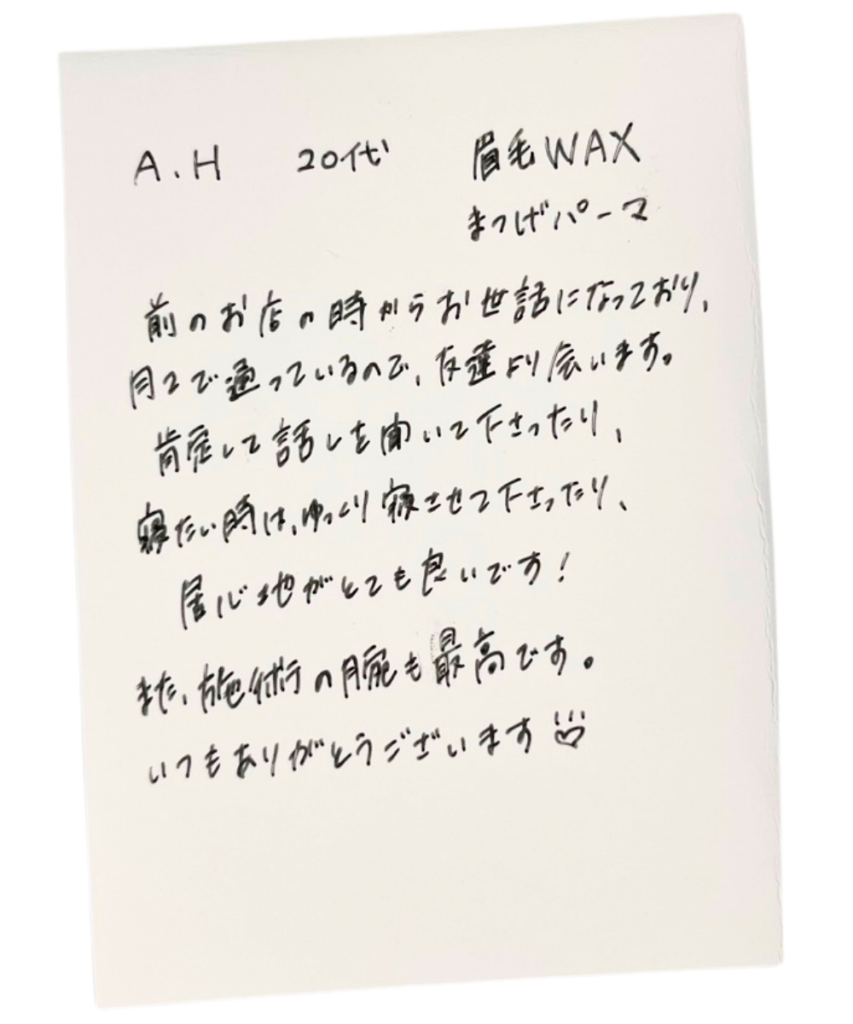 A.H 20代 眉毛WAX
まつげパーマ
前のお店の時からお世話になっており、
月2で通っているので、友達より会います。
肯定して話しを聞いて下さったり、
寝たい時は、ゆっくり寝させて下さったり、
居心地がとても良いです!
また、施術の腕も最高です。
いつもありがとうございます